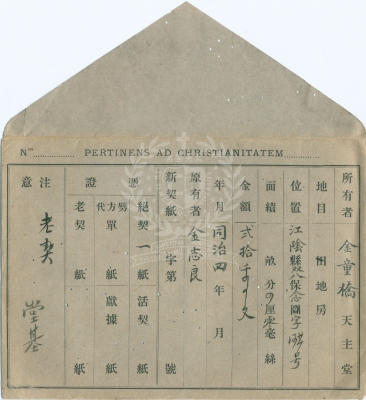 Nᵒˢ PERTINENS AD CHRISTIANITATEM
所有者 金童橋 天主堂
地目 田 地 房
位置 江陰縣 八保念圖 字 號
面積 畝 分 厘 毫 絲
金額 貳拾千文
年月 同治四年 月
原有者 金志良
新契紙 字第 號
憑證
絕契 一 紙 活契 紙
代方單 紙 獻據 紙
老契 紙 紙
注意 老契 堂基